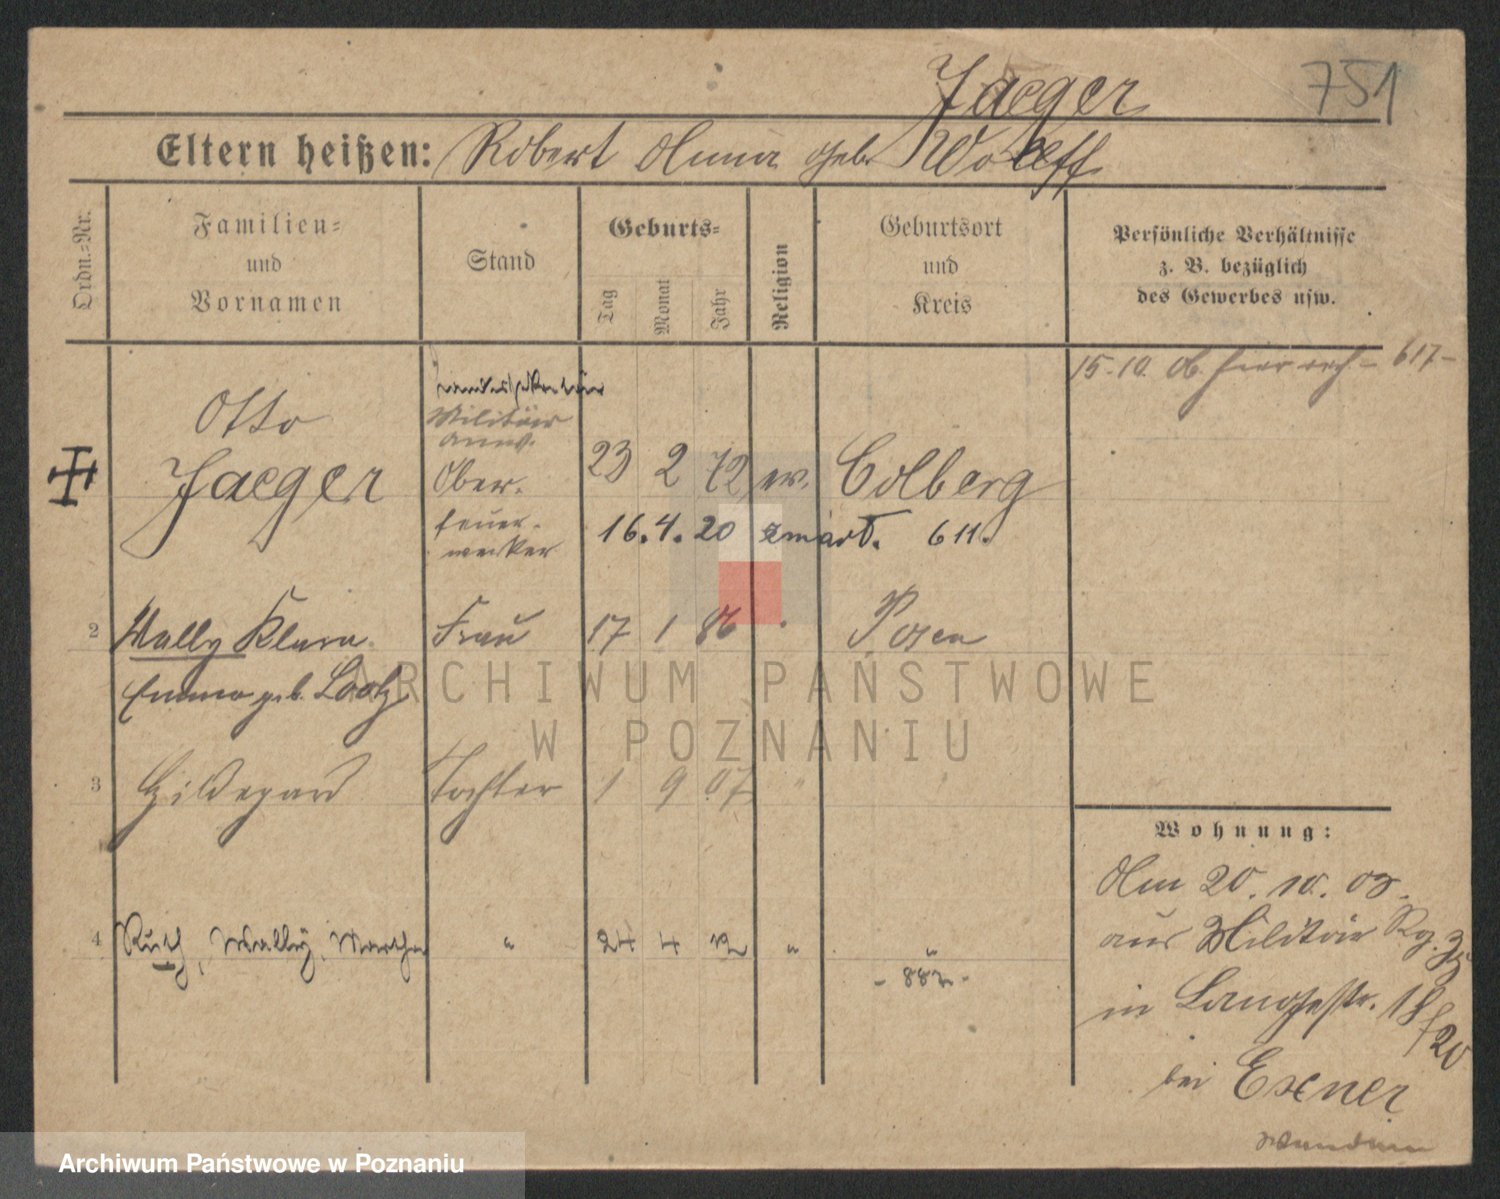 Jaeger 751
Eltern heißen: Robert Anna geb. Wolff
Ordn.=Nr.
Familien=
und
Vornamen
Stand
Geburts=
Tag
Monat
Jahr
Religion
Geburtsort
und
Kreis
Persönliche Verhältnisse
z. B. bezüglich
des Gewerbes usw.
15. 10. 06. hier - 617 -
Militär
anw.
Otto
Jaeger
Ober.
feuer-
werker
23 2 72 ev. Colberg
16. 4. 20 611.
2 Wally Klara Frau 17 1 86 " Posen
Emma geb. Lootz
3 Hildegard Tochter 1 9 07 " "
4 Ruth, Wally, Martha " 24 4 12 " "
- 882 -
Wohnung:
Am 20. 10. 03.
aus Militär Rg.
in Langestr. 18/20
bei Exner
ARCHIWUM PAŃSTWOWE
W POZNANIU
Archiwum Państwowe w Poznaniu